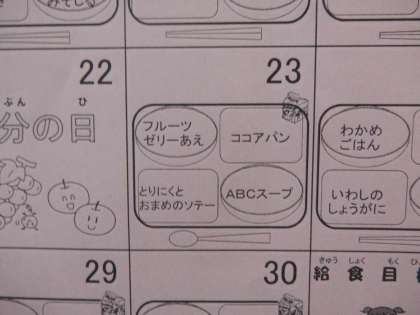 みそしる
22
23
ぶん ひ
分の日
フルーツ
ゼリーあえ
ココアパン
とりにくと
おまめのソテー
ABCスープ
わかめ
ごはん
いわしの
しょうがに
29
30
きゅう しょく もく
給食目